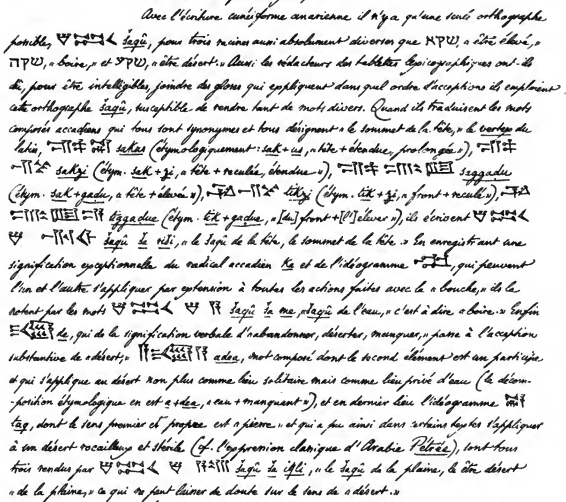 Avec l'écriture cunéiforme anarienne il n'y a, qu'une seule orthographe
possible, šaqû, pour trois racines aussi absolument diverses que שקא, « être élevé, »
שקה, « boire, » et שקע, « être désert. » Aussi les rédacteurs des tablettes lexicographiques ont-ils
dû, pour être intelligibles, joindre des gloses qui expliquent dans quel ordre d'acceptions ils emploient
cette orthographe šaqû, susceptible de rendre tant de mots divers. Quand ils traduisent les mots
composés accadiens qui tous sont synonymes et tous désignent « le sommet de la tête, » le vertex du
latin, sakus (étymologiquement : sak + us, « tête + étendue, prolongée »),
sakzi (étym. sak + zi, « tête + reculée, étendue »), saggadu
(étym. sak + gadu, « tête + élevée »), tikzi (étym. tik + zi, « front + reculé »),
tiggadue (étym. tik + gadue, « [du] front + [l']élever »), ils écrivent
šaqû ša riši, « le šaqû de la tête, le sommet de la tête. » En enregistrant une
signification exceptionnelle du radical accadien Ka et de l'idéogramme , qui peuvent
l'un et l'autre s'appliquer par extension à toutes les actions faites avec la « bouche, » de la
notent par les mots šaqû ša me, « šaqû de l'eau, » c'est à dire « boire. » Enfin
de, qui de la signification verbale d'« abandonner, déserter, manquer, » passe à l'acception
substantive de « désert, » adea, mot composé dont le second élément est un participe
et qui s'applique au désert non plus comme lieu solitaire mais comme lieu privé d'eau (la décom-
-position étymologique en est a + dea, « eau + manquant »), et en dernier lieu l'idéogramme
tag, dont le sens premier et propre est « pierre » et qui a pu ainsi dans certains textes s'appliquer
à un désert rocailleux et stérile (cf. l'expression classique d'Arabie Pétrée), sont tous
trois rendus par šaqû ša iqli, « le šaqû de la plaine, le être désert
« de la plaine, » ce qui ne peut laisser de doute sur le sens de « désert. »